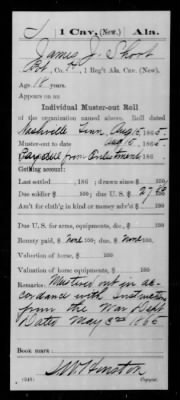 S 1 Cav. (New.) Ala.
James J.
Co. 1 Reg't Ala. Cav. (New).
Age 18 years.
Appears on an
Individual Muster-out Roll
of the organization named above. Roll dated
Nashville Tenn, Aug 15, 1865.
Muster-out to date Aug 15, 1865.
from Enlistment 186
Clothing account:
Last settled , 186 ; drawn since $ 100
Due soldier $ 100; due U. S. $
Am't for cloth'g in kind or money adv'd $ 100
Due U. S. for arms, equipments, &c., $ 100
Bounty paid $ None 100; due $ None 100
Valuation of horse, $ 100
Valuation of horse equipments, $ 100
Remarks: Mustered out in ac-
cordance with instructions
from the War Dept
Dated May 3rd 1865
Book mark:
(848) Copyist.